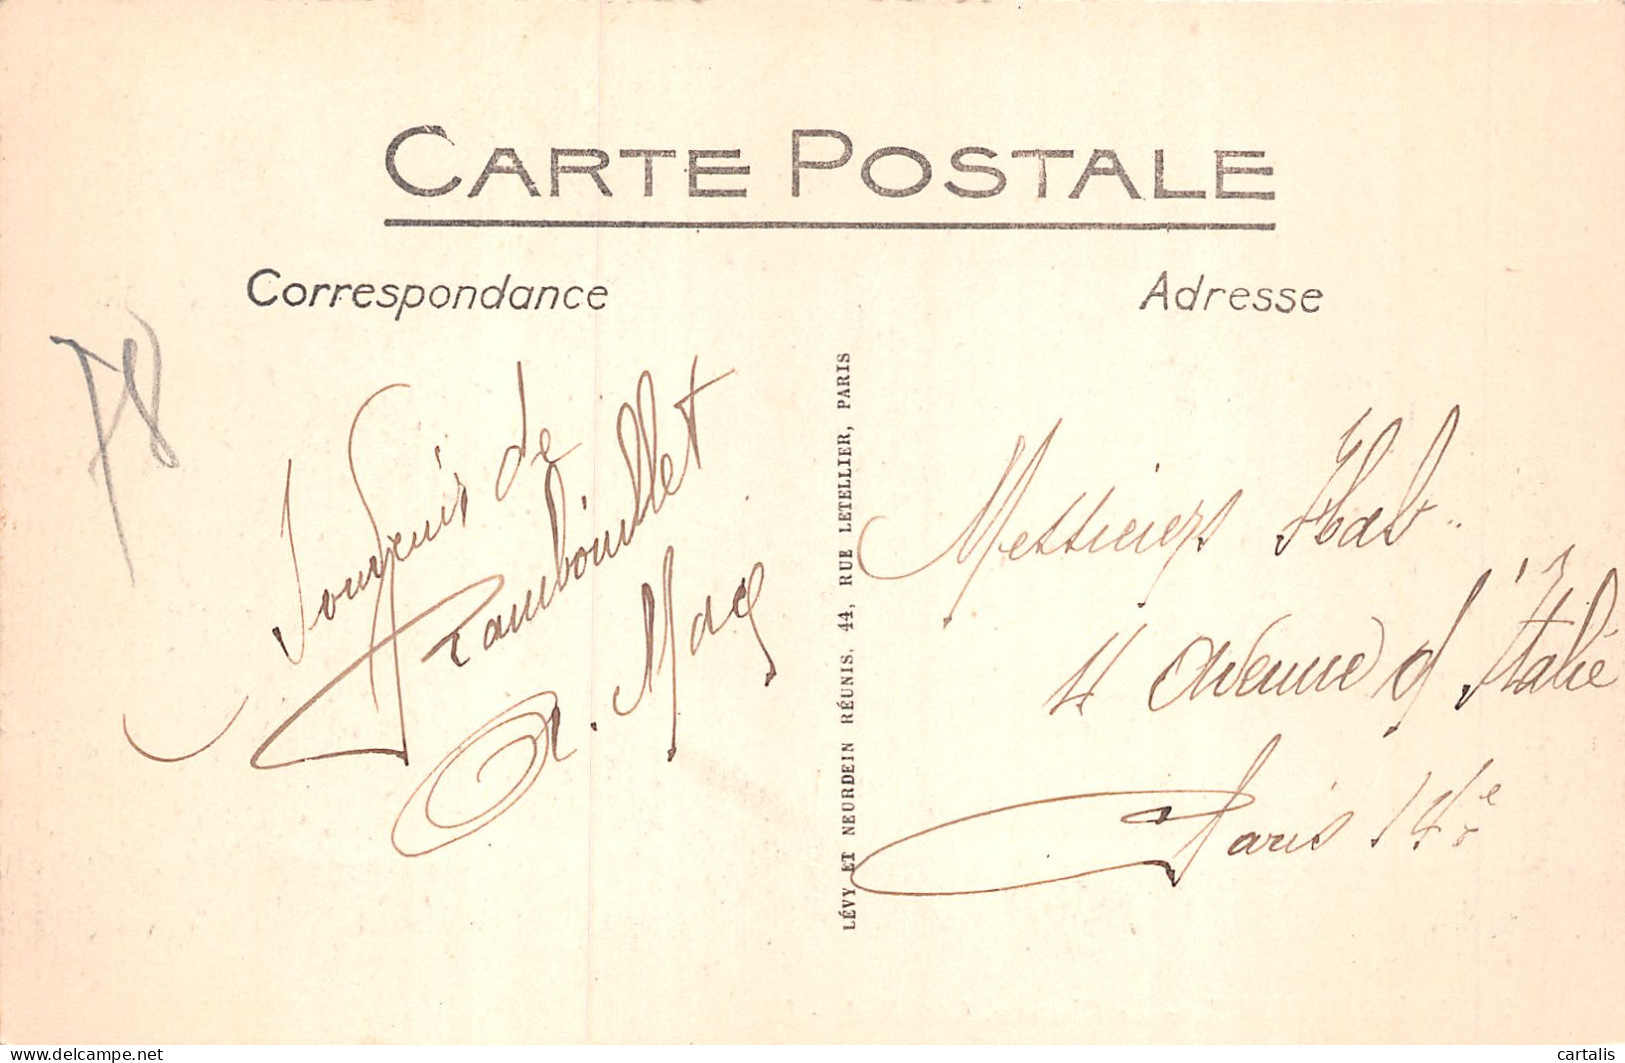 CARTE POSTALE
Correspondance
Adresse
78
Souvenir de
Rambouillet
LÉVY ET NEURDEIN RÉUNIS, 44, RUE LETELLIER, PARIS
4 avenue d'Italie
Paris 14e
delcampe.net
cartalis